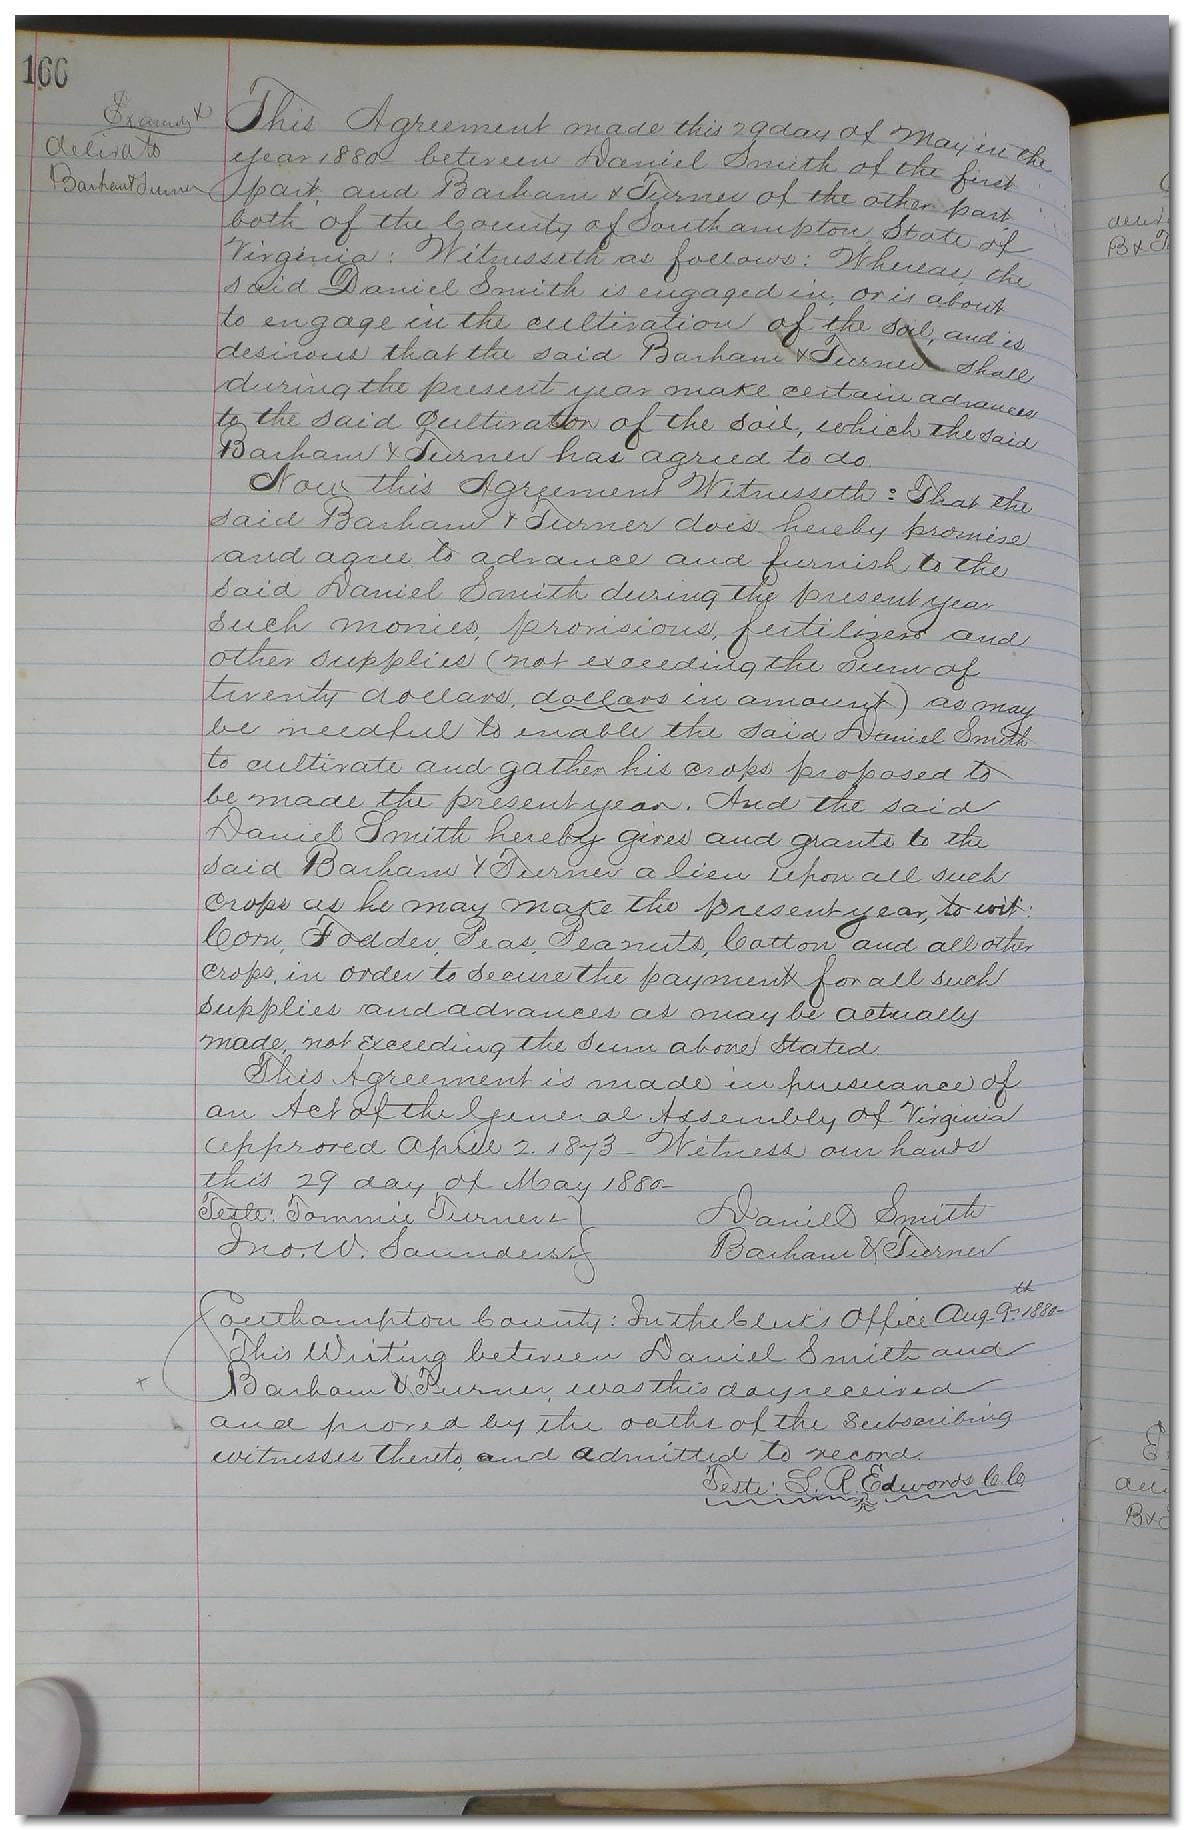 166
Examd &
delivd to
Barham & Turner
This Agreement made this 29 day of May in the
year 1880 between Daniel Smith of the first
part, and Barham & Turner of the other part,
both of the County of Southampton, State of
Virginia: Witnesseth as follows: Whereas, the
said Daniel Smith is engaged in, or is about
to engage in the cultivation of the soil, and is
desirous that the said Barham & Turner shall
during the present year make certain advances
to the said Cultivator of the soil, which the said
Barham & Turner has agreed to do.
Now this Agreement Witnesseth: That the
said Barham & Turner does hereby promise
and agree to advance and furnish to the
said Daniel Smith during the present year
such monies, provisions, fertilizers and
other supplies (not exceeding the sum of
twenty dollars, dollars in amount) as may
be needful to enable the said Daniel Smith
to cultivate and gather his crops proposed to
be made the present year. And the said
Daniel Smith hereby gives and grants to the
said Barham & Turner a lien upon all such
crops as he may make the present year, to wit:
Corn, Fodder, Peas, Peanuts, Cotton and all other
crops, in order to secure the payment for all such
supplies and advances as may be actually
made, not exceeding the sum above stated.
This Agreement is made in pursuance of
an Act of the General Assembly of Virginia
approved April 2. 1873 - Witness our hands
this 29 day of May 1880-
Teste: Tommie Turner } Daniel Smith
Jno. W. Saunders } Barham & Turner
Southampton County: In the Clerk's Office Aug. 9th 1880-
This Writing between Daniel Smith and
Barham & Turner, was this day received
and proved by the oaths of the subscribing
witnesses thereto and admitted to record.
Teste: L. R. Edwards C.C.
B&
B&